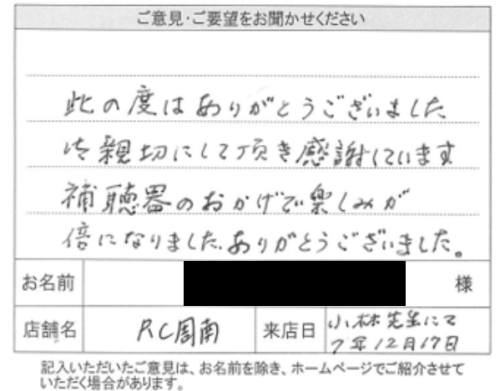 ご意見・ご要望をお聞かせください
此の度はありがとうございました
御親切にして頂き感謝しています
補聴器のおかげで楽しみが
倍になりました。ありがとうございました。
お名前
様
店舗名
RC周南
来店日
小林先生にて
7年12月17日
記入いただいたご意見は、お名前を除き、ホームページでご紹介させて
いただく場合があります。